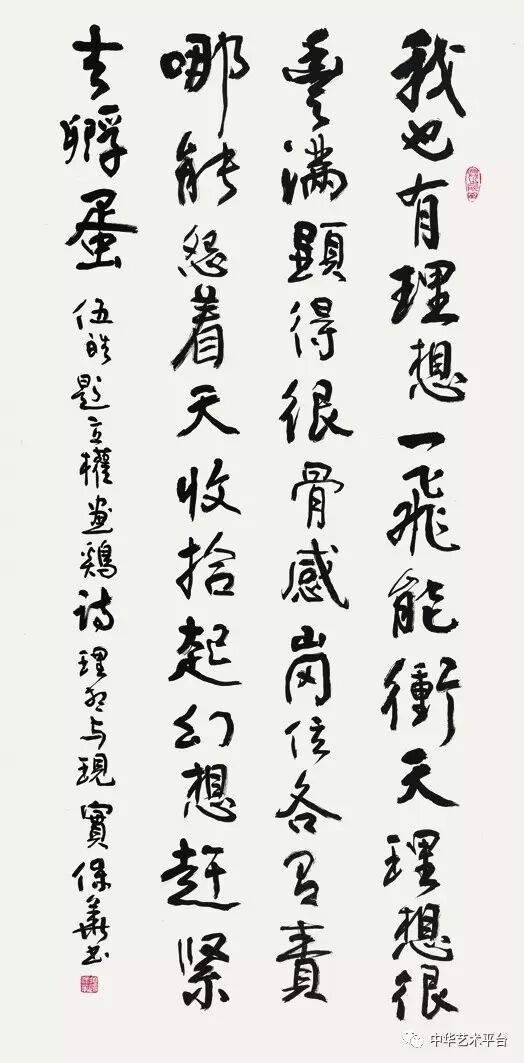 我也有理想一飛能衝天理想很
豐满顯得很骨感崗位各有責
哪能怨着天收拾起幻想趕紧
去孵蛋
伍皓題立權画鷄诗理想与現實保華书
中华艺术平台